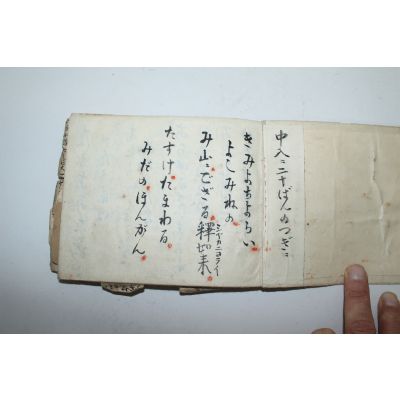 中入ニ二十ばんのつぎニ
きみよちよらい
よしみねの
み山ニござる釋如来
シヤカニヨライ
たすけたまわる
みだのほんがん